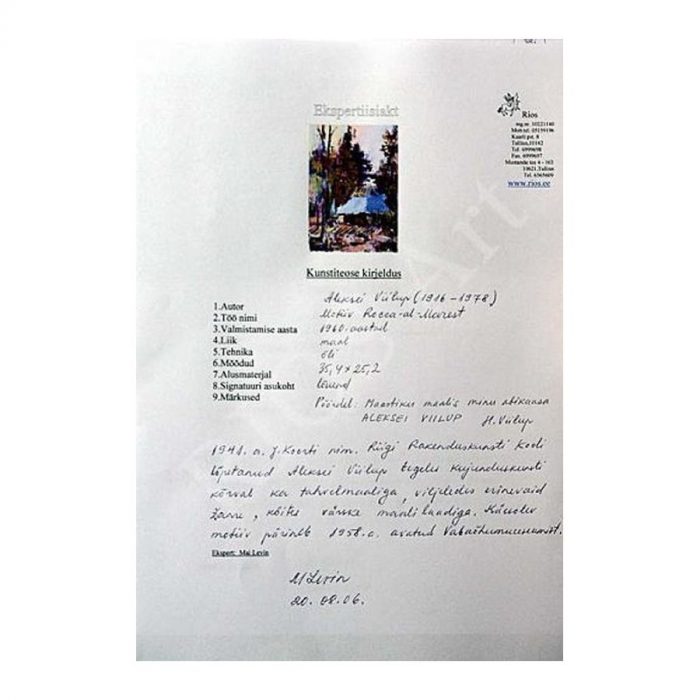 Ekspertiisiakt
Rios
reg.nr. 10221140
Kaarli pst. 8
Tallinn,10142
Tel. 6999698
Fax. 6999697
Mustamäe tee 4 - 163
10621.Tallinn
Tel. 6565609
www.rios.ee
Kunstiteose kirjeldus
1.Autor Aleksei Viilup (1916-1978)
2.Töö nimi Motiiv Rocca-al-Marest
3.Valmistamise aasta 1960. aastad
4.Liik maal
5.Tehnika õli
6.Mõõdud 35,4 x 25,2
7.Alusmaterjal lõuend
8.Signatuuri asukoht
9.Märkused Pöördel: Maastiku maalis minu abikaasa
ALEKSEI VIILUP H. Viilup
a. J. Koorti nim. Riigi Rakenduskunsti Kooli
lõpetanud Aleksei Viilup tegeles kujunduskunsti
kõrval ka tahvelmaaliga, viljeledes erinevaid
žanre, kõike värske maalilaadiga. Käesolev
motiiv pärineb 1958.a. avatud Vabaõhumuuseumist.
Ekspert: Mai Levin
M Levin
20. 08. 06.